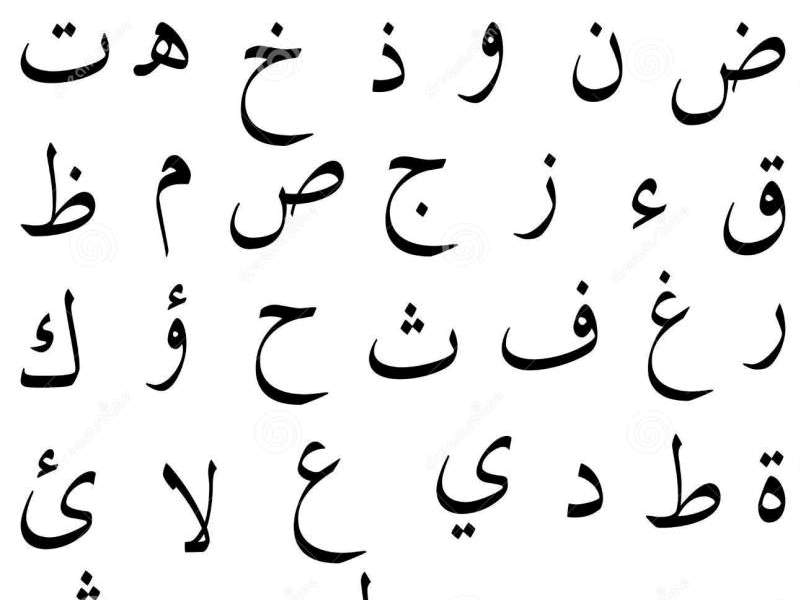 ض ن و ذ خ ه ت
ق ء ز ج ص م ظ
ر غ ف ث ح ؤ ك
ة ط د ي ع لا ئ